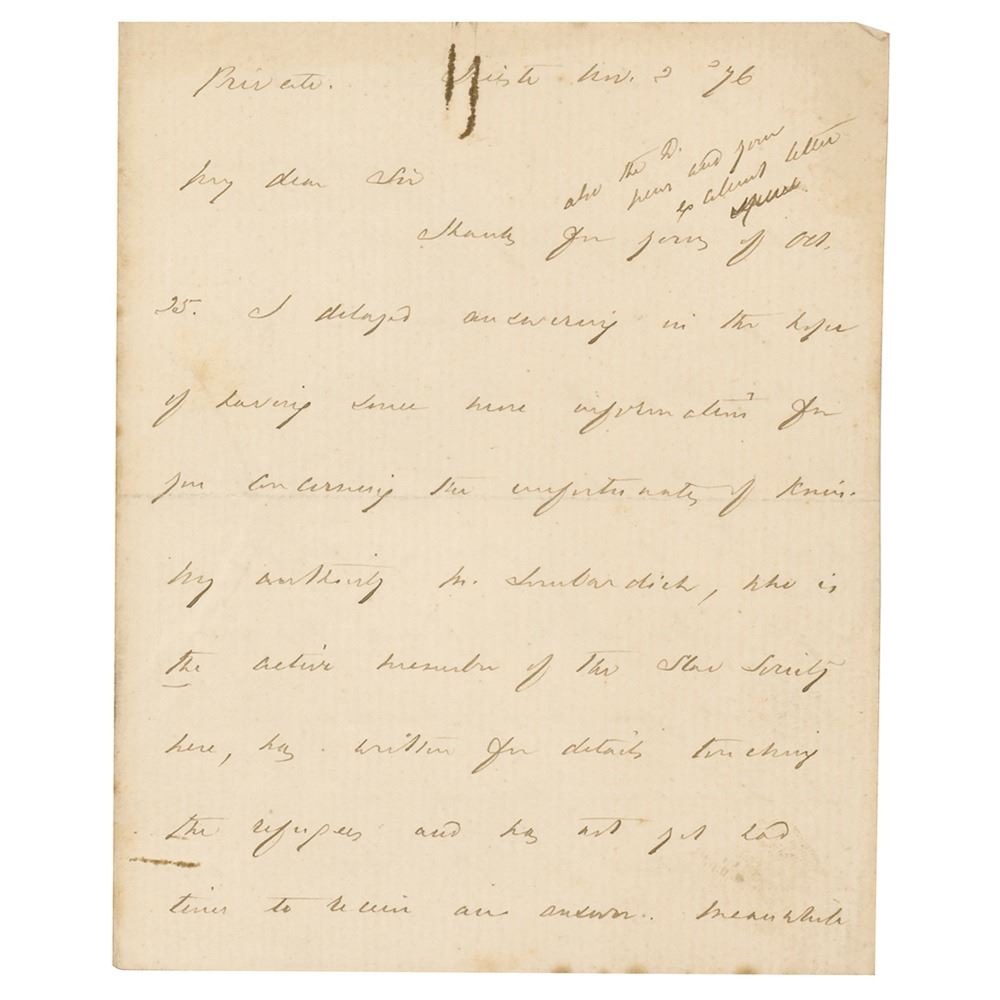 Private. Trieste Nov. 2 '76
My dear Sir
also the D.
news and your
excellent letter
Thanks for yours of Oct.
25. I delayed answering in the hope
of having some more information for
you concerning the unfortunates of Knin.
My authority M. Lombardich, who is
the active member of the Slav Society
here, has written for details touching
the refugees and has not yet had
time to receive an answer. Meanwhile